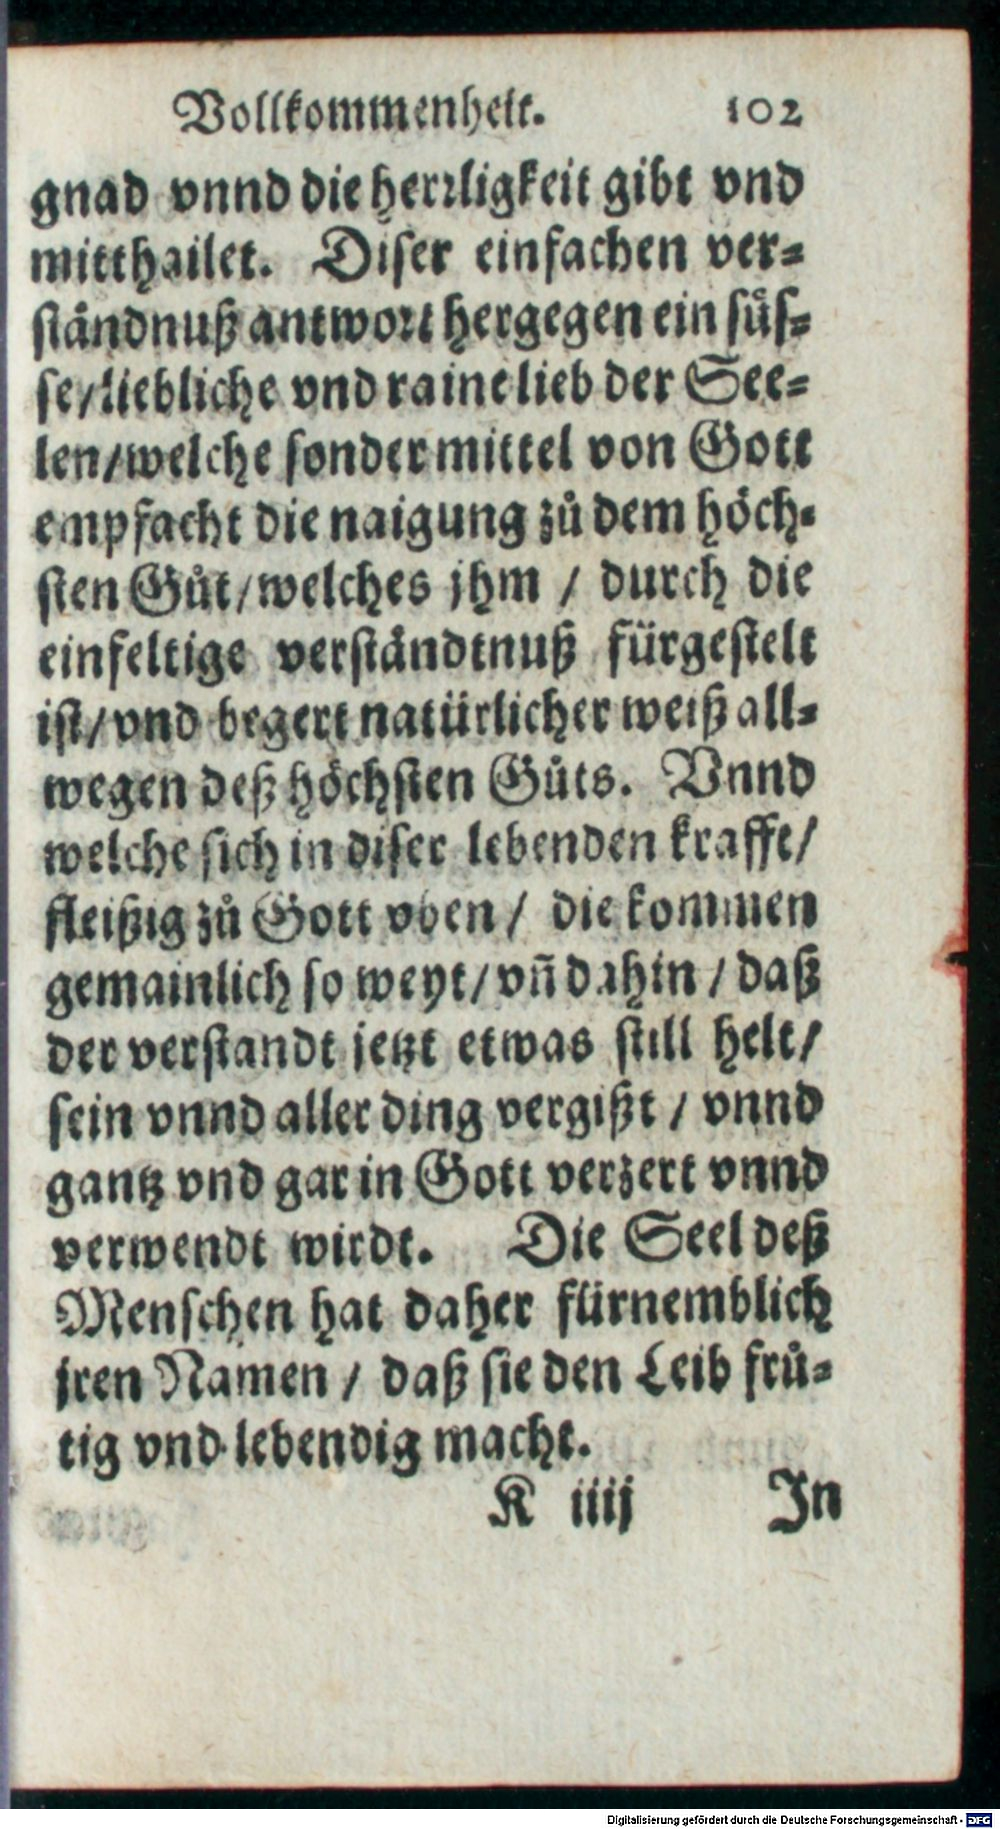 Vollkommenheit. 102
gnad vnnd die herꝛligkeit gibt vnd
mitthailet. Diser einfachen ver-
ståndnuß antwoꝛt hergegen ein sůs-
se/liebliche vnd raine lieb der See-
len/welche sonder mittel von Gott
empfacht die naigung zů dem höch-
sten Gůt/welches jhm / durch die
einfeltige verståndtnuß fürgestelt
ist/vnd begert natürlicher weiß all-
wegen deß höchsten Gůts. Vnnd
welche sich in diser lebenden krafft/
fleißig zů Gott vben / die kommen
gemainlich so weyt/vñ dahin / daß
der verstandt jetzt etwas still helt/
sein vnnd aller ding vergißt / vnnd
gantz vnd gar in Gott verzert vnnd
verwendt wirdt. Die Seel deß
Menschen hat daher fürnemblich
jren Namen / daß sie den Leib frů-
tig vnd lebendig macht.
K iiij In
Digitalisierung gefördert durch die Deutsche Forschungsgemeinschaft - DFG